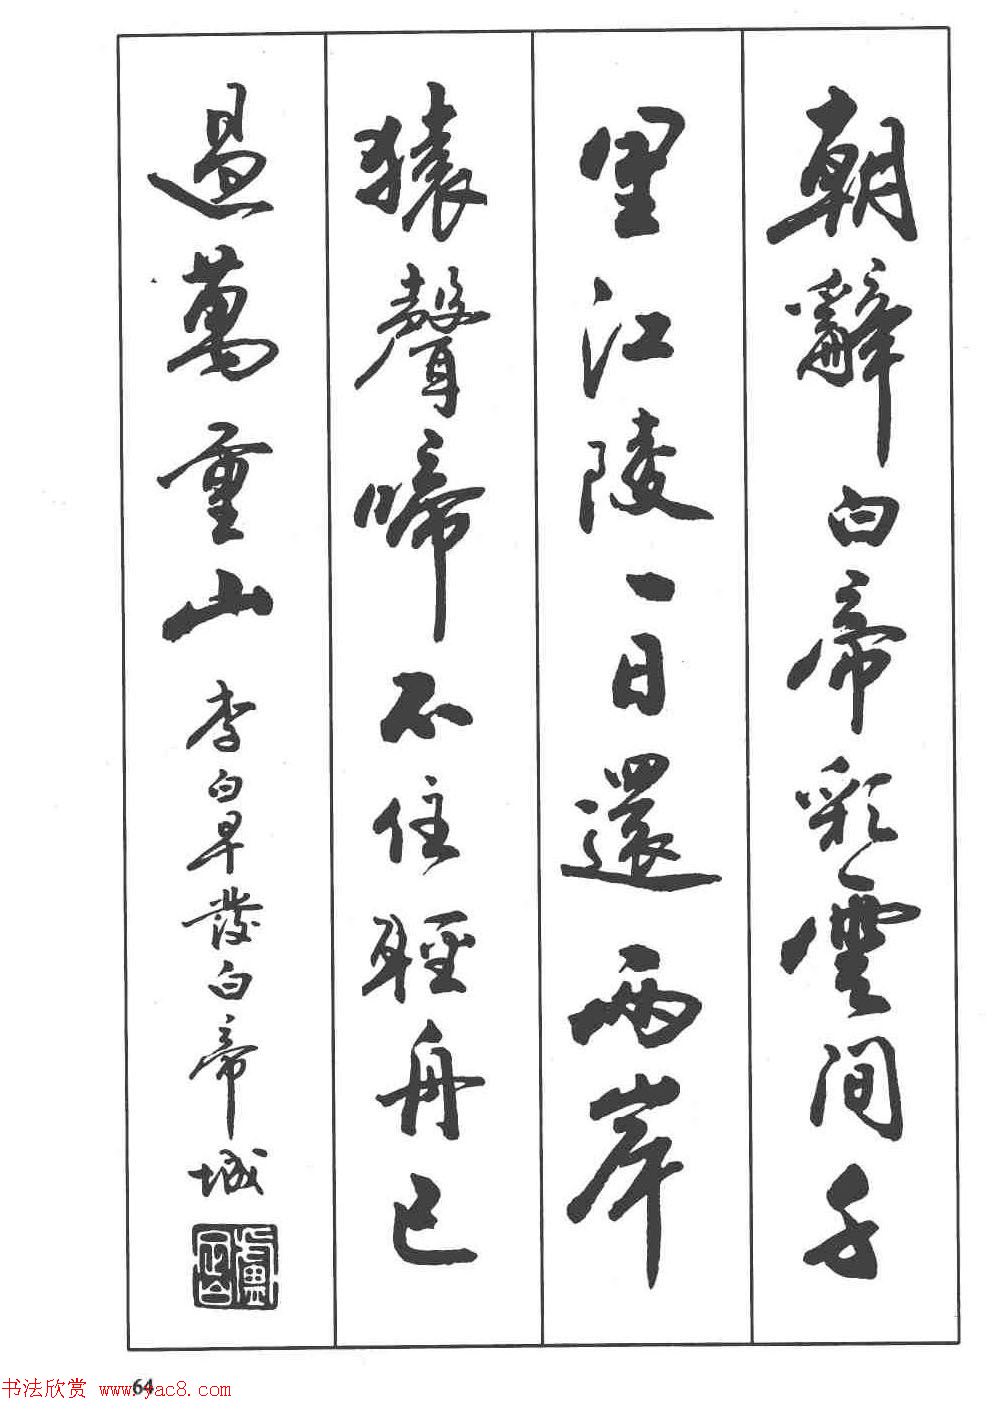 朝辭白帝彩雲間千
里江陵一日還兩岸
猿聲啼不住輕舟已
過萬重山
李白早發白帝城
64
书法欣赏 www.yac8.com